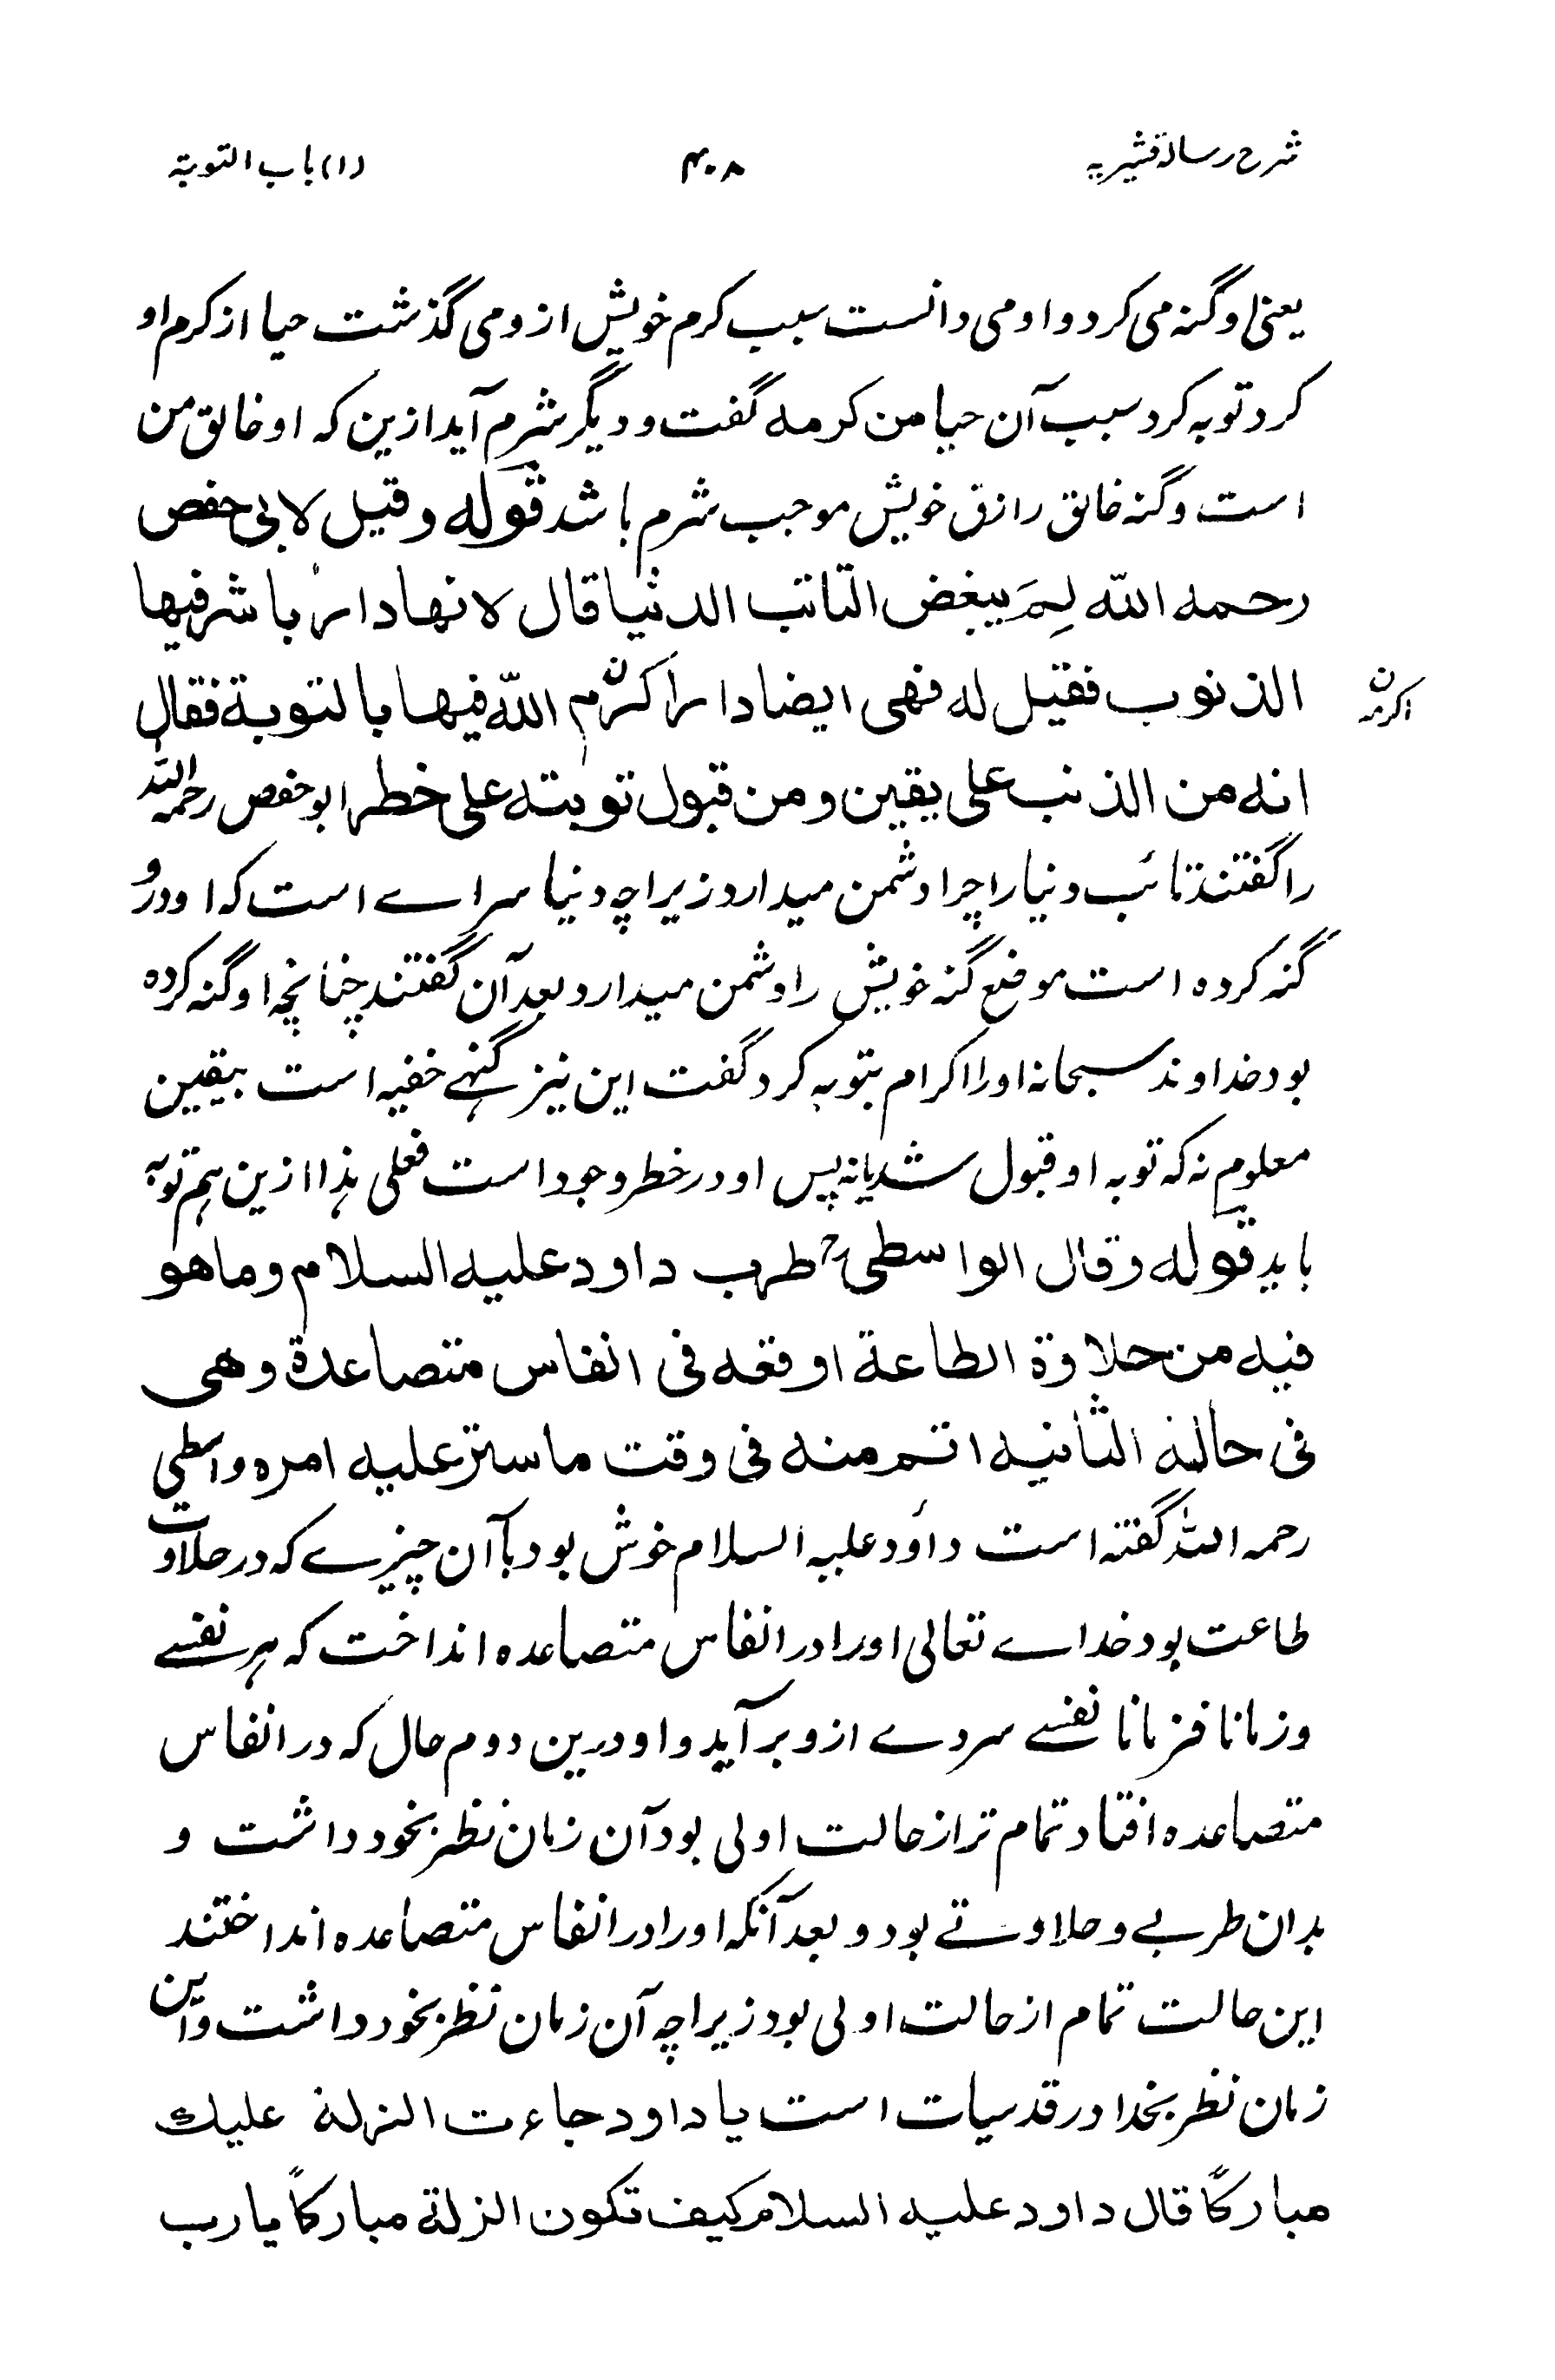 شرح رسالہ قشیریہ
۴۰۸
(۱) باب التوبۃ
یعنی او گنہ می کرد و او می دانست سبب کرم خویش ازو می گذشت حیا از کرم او
کرد توبہ کرد سبب آن حیا من کرمہ گفت و دیگر شرم آید ازین کہ او خالق من
است و گنہ خالق رازق خویش موجب شرم باشد قولہ وقیل لابی حفص
رحمہ اللہ لِمَ یبغض التائب الدنیا قال لانھا دار باشر فیھا
الذنوب فقیل لہ فھی ایضا دار اکرم اللہ فیھا بالتوبة فقال
اکرمہ
انہ من الذنب علی یقین ومن قبول توبتہ علی خطر ابو حفص رحمہ اللہ
را گفتند تائب دنیا را چرا دشمن میدارد زیراچہ دنیا سراے است کہ او درو
گنہ کردہ است موضع گنہ خویش را دشمن میدارد بعد آن گفتند چنانچہ او گنہ کردہ
بود خداوند سبحانہ او را اکرام بتوبہ کرد گفت این نیز گنہے خفیہ است بیقین
معلوم نہ کہ توبہ او قبول شد یا نہ پس او در خطر وجود است فعلی ہذا ازین ہم توبہ
باید قولہ وقال الواسطی طرب داود علیہ السلام وما ھو
فیہ من حلاوة الطاعة اوقعہ فی انفاس متصاعدة وھی
فی حالہ الثانیہ اتم منہ فی وقت ما ستر علیہ امرہ واسطی
رحمہ اللہ گفتہ است داؤد علیہ السلام خوش بود بآن چیزے کہ در حلاوت
طاعت بود خداے تعالی او را در انفاس متصاعدہ انداخت کہ ہر نفسے
و زمانا فزمانا نفسے سردے ازو برآید و او درین دوم حال کہ در انفاس
متصاعدہ افتاد تمام تر از حالت اولی بود آن زمان نظر بخود داشت و
بدان طربے و حلاوتے بود و بعد آنکہ او را در انفاس متصاعدہ انداختند
این حالت تمام از حالت اولی بود زیراچہ آن زمان نظر بخود داشت و این
زمان نظر بخدا در قدسیات است یا داود جاءت الزلة علیك
مبارکاً قال داود علیہ السلام کیف تکون الزلة مبارکاً یا رب